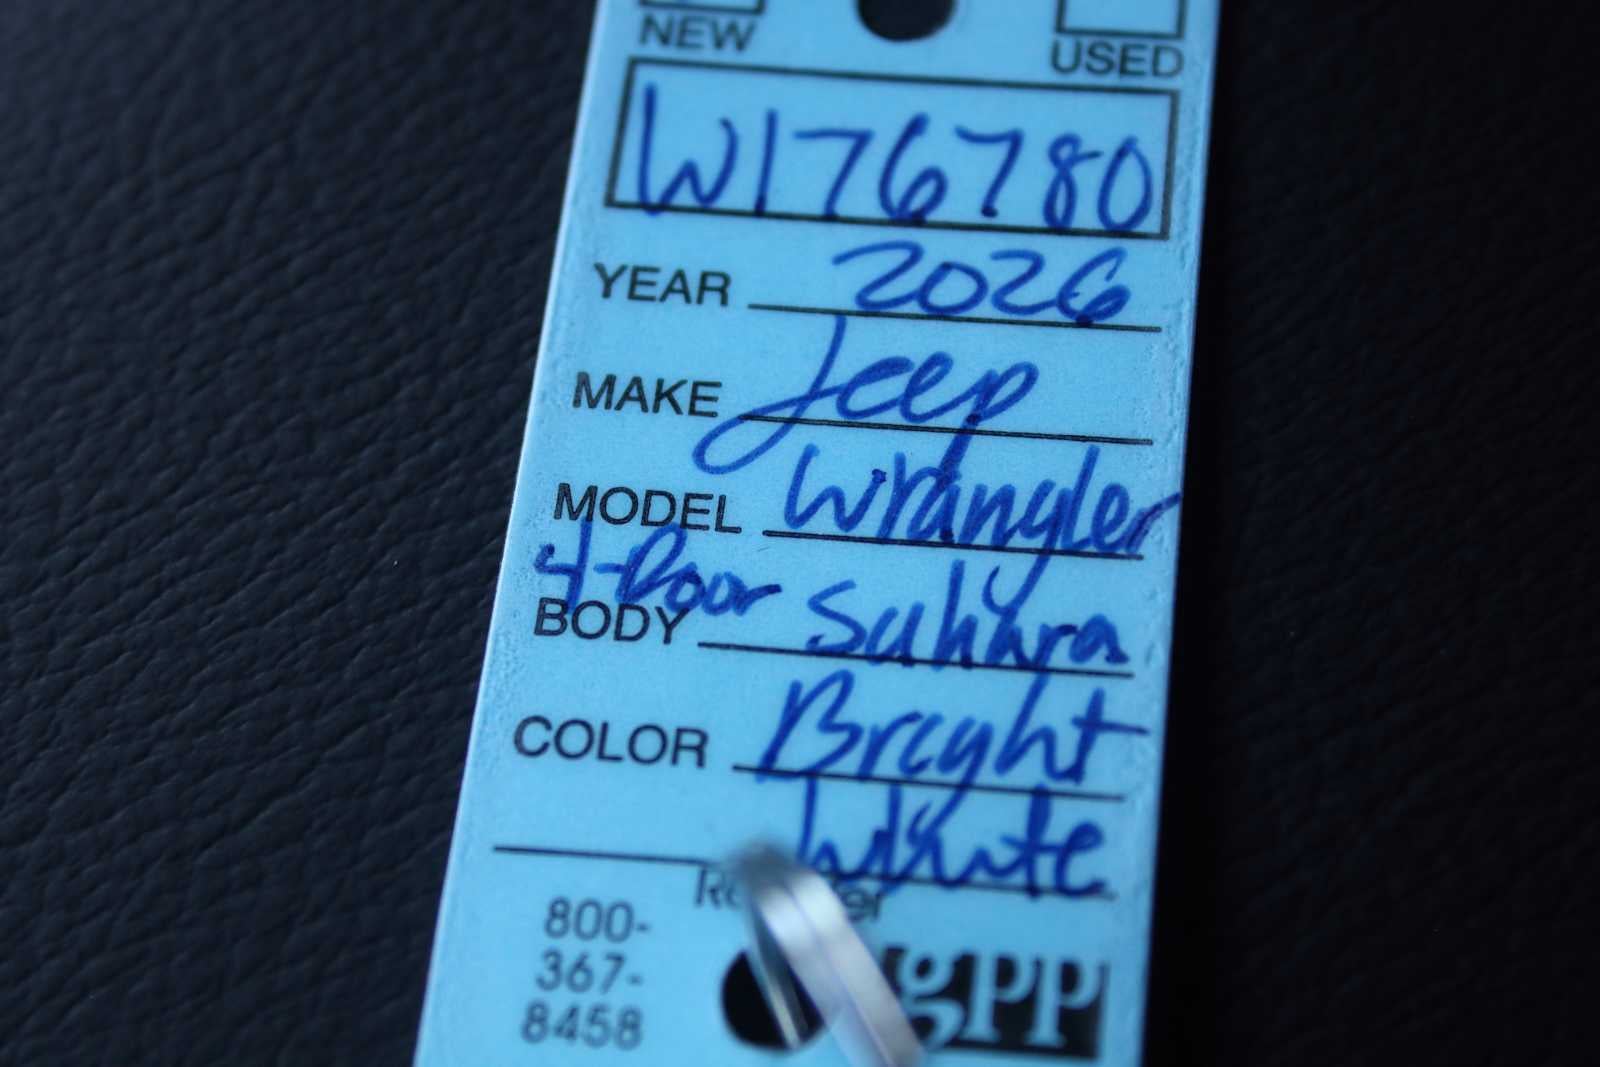 NEW USED
W176780
YEAR 2026
MAKE Jeep
MODEL Wrangler
4-Door Sahara
BODY
COLOR Bright
White
800-
367-
8458
gPP